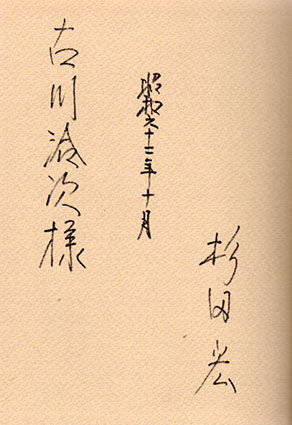 杉田宏
昭和六十二年十月
古川次様